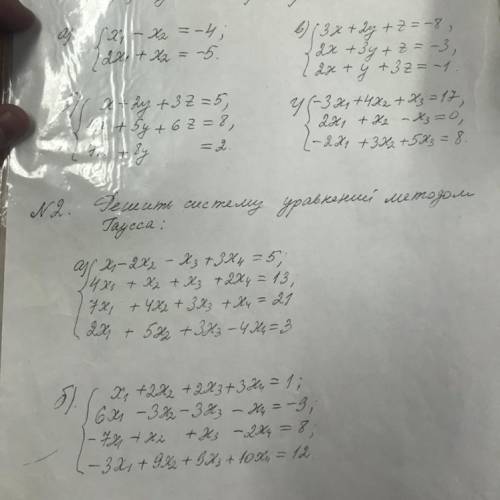 а) { x₁ - x₂ = -4;
2x₁ + x₂ = -5.
в) { 3x + 2y + z = -8,
2x + 3y + z = -3,
2x + y + 3z = -1.
{ x - 2y + 3z = 5,
+ 5y + 6z = 8,
+ 8y = 2.
{ -3x₁ + 4x₂ + x₃ = 17,
2x₁ + x₂ - x₃ = 0,
-2x₁ + 3x₂ + 5x₃ = 8.
N2. Решить систему уравнений методом
Гаусса:
а) { x₁ - 2x₂ - x₃ + 3x₄ = 5;
4x₁ + x₂ + x₃ + 2x₄ = 13;
7x₁ + 4x₂ + 3x₃ + x₄ = 21
2x₁ + 5x₂ + 3x₃ - 4x₄ = 3
б). { x₁ + 2x₂ + 2x₃ + 3x₄ = 1;
6x₁ - 3x₂ - 3x₃ - x₄ = -9;
-7x₁ + x₂ + x₃ - 2x₄ = 8;
-3x₁ + 9x₂ + 9x₃ + 10x₄ = 12